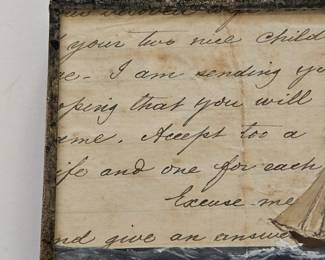 your two nice child
. I am sending yo
oping that you will
ame. Accept too a
ife and one for each
Excuse me
nd give an answe